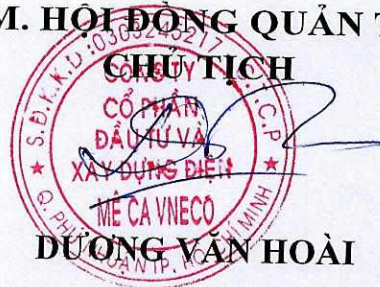 M. HỘI ĐỒNG QUẢN T
CHỦ TỊCH
S.Đ.K.K.D:0303245217 C.T.C.P
CÔNG TY
CỔ PHẦN
ĐẦU TƯ VÀ
XÂY DỰNG ĐIỆN
MÊ CA VNECO
Q. PHÚ NHUẬN TP. HỒ CHÍ MINH
DƯƠNG VĂN HOÀI